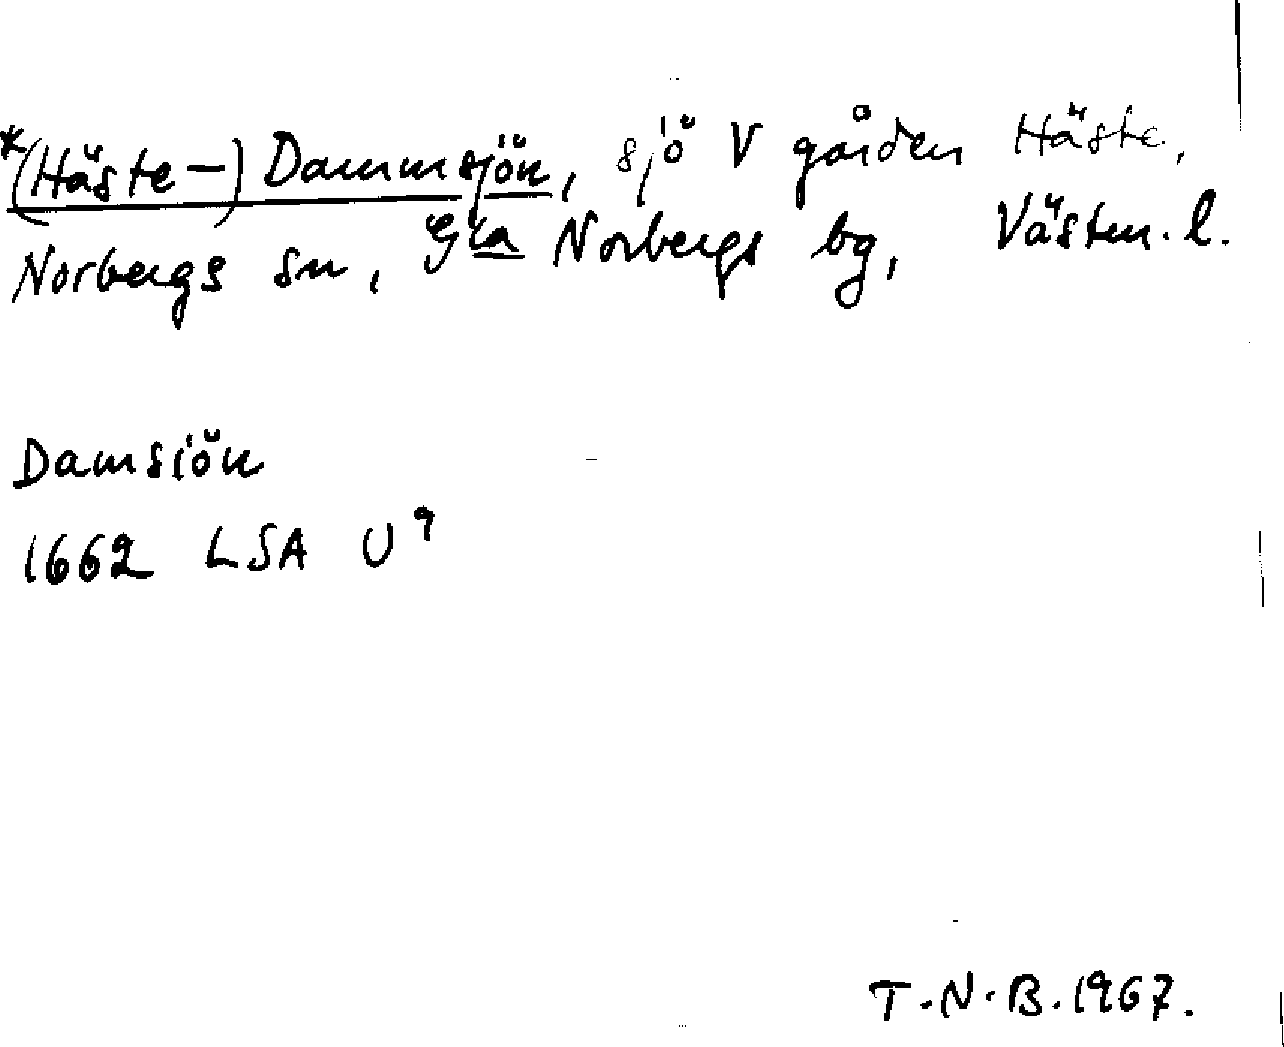 *(Häste-) Dammsjön, sjö V gården Häste,
Norbergs sn, Gla Norbergs bg, Västm. l.
Damsiön
1662 LSA U 9
T.N.B. 1967.